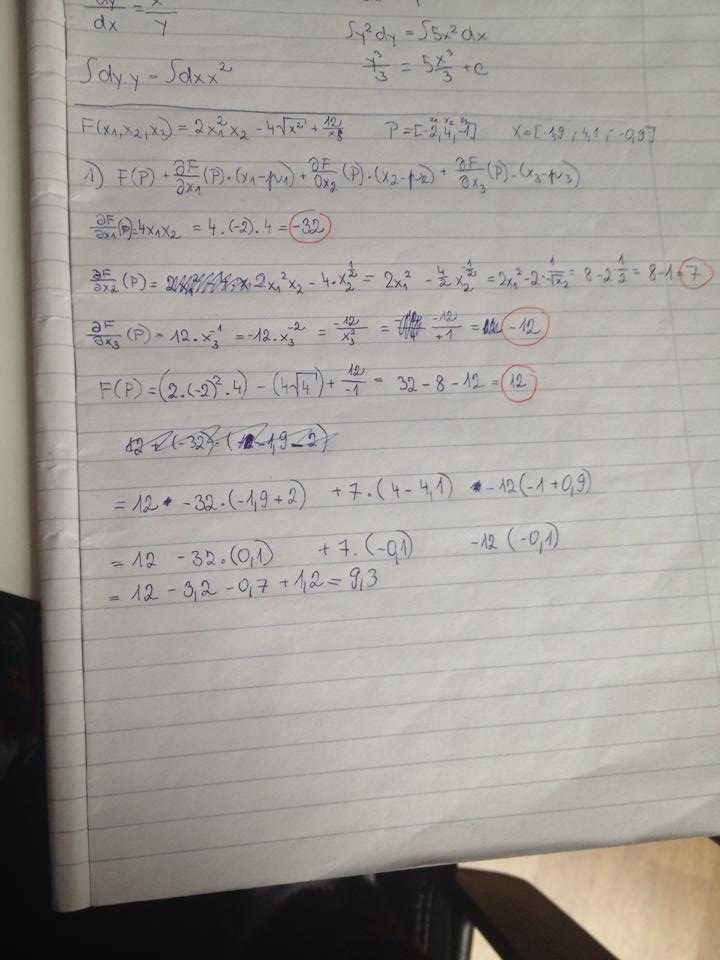 dy/dx = x/y
∫y²dy = ∫5x²dx
y³/3 = 5 x³/3 + c
∫dy.y = ∫dx x²
F(x₁,x₂,x₃) = 2x₁²x₂ - 4√x² + 12/x₃ P=[-2,4,-1] X=[-1,9 ; 4,1 ; -0,9]
x₁ x₂ x₃
1) F(P) + ∂F/∂x₁ (P)·(x₁-p₁) + ∂F/∂x₂ (P)·(x₂-p₂) + ∂F/∂x₃ (P)·(x₃-p₃)
∂F/∂x₁ (P)=4x₁x₂ = 4.(-2).4 = -32
∂F/∂x₂ (P) = 2x₁²x₂ - 4·x₂^½ = 2x₁² - 4/2 x₂^-½ = 2x₁²-2·1/√x₂ = 8-2·1/2 = 8-1=7
∂F/∂x₃ (P) = 12·x₃⁻¹ = -12·x₃⁻² = -12/x₃² = -12/+1 = -12
F(P) = (2·(-2)²·4) - (4√4) + 12/-1 = 32-8-12 = 12
= 12 · -32·(-1,9+2) + 7·(4-4,1) · -12(-1+0,9)
= 12 -32·(0,1) +7·(-0,1) -12 (-0,1)
= 12 - 3,2 - 0,7 + 1,2 = 9,3